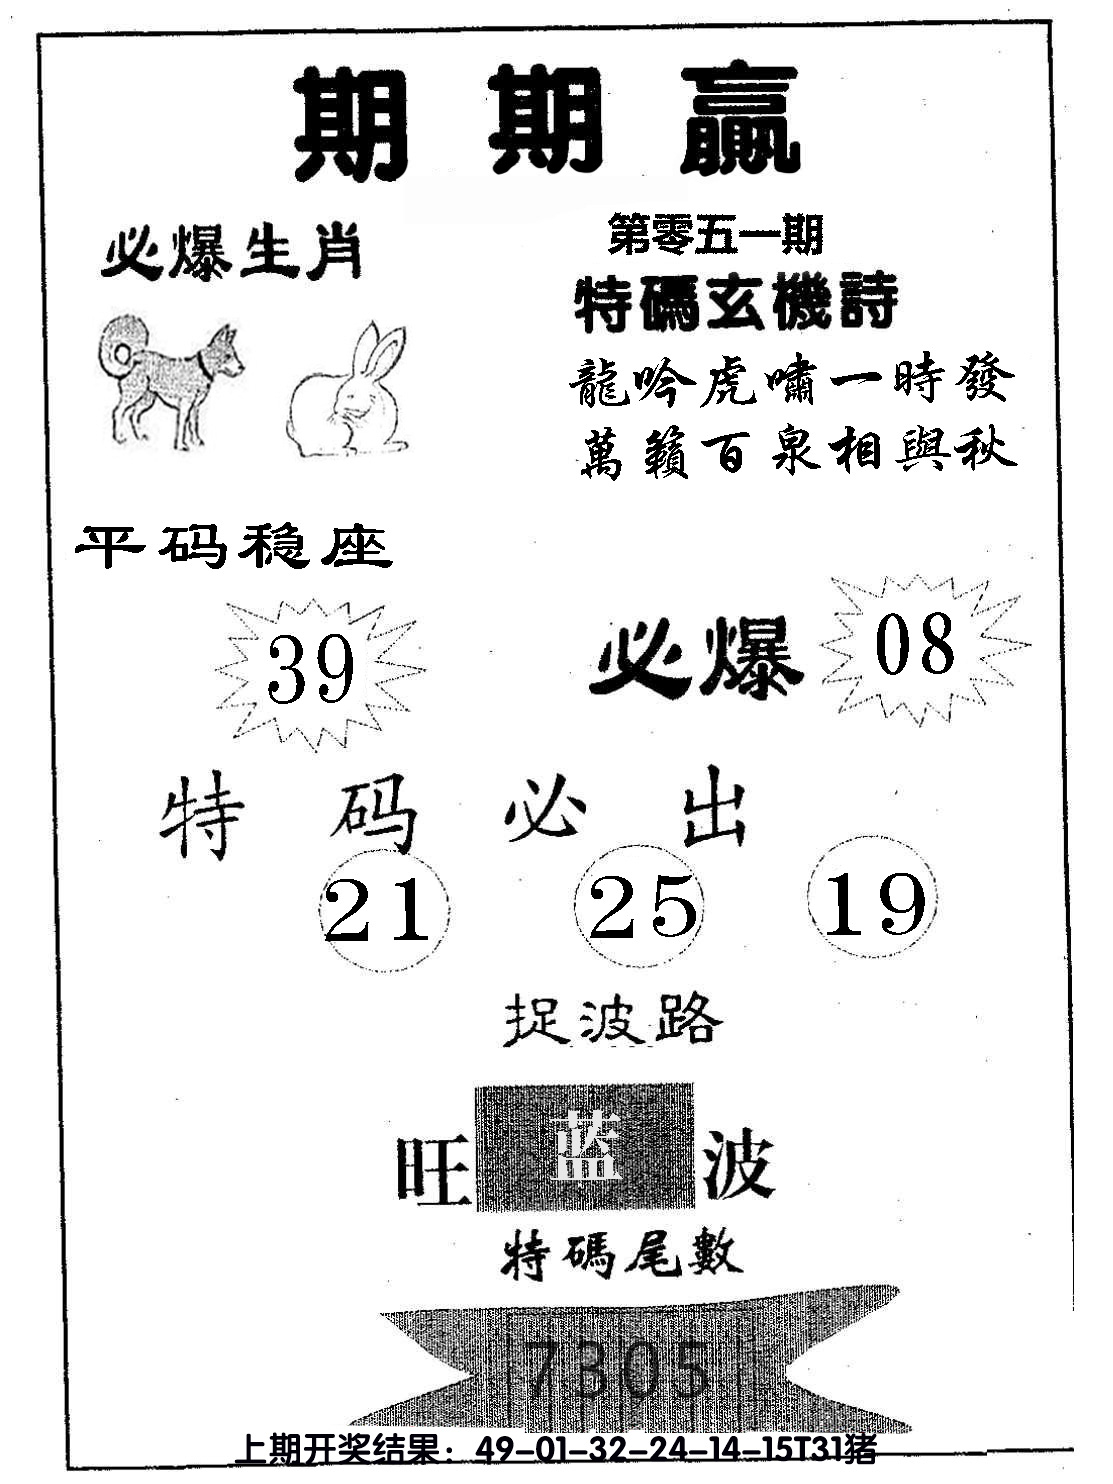 期期贏
必爆生肖
第零五一期
特碼玄機詩
龍吟虎嘯一時發
萬籟百泉相與秋
平码稳座
39
必爆 08
特码必出
21 25 19
捉波路
旺 蓝 波
特碼尾數
7305
上期开奖结果：49-01-32-24-14-15T31猪